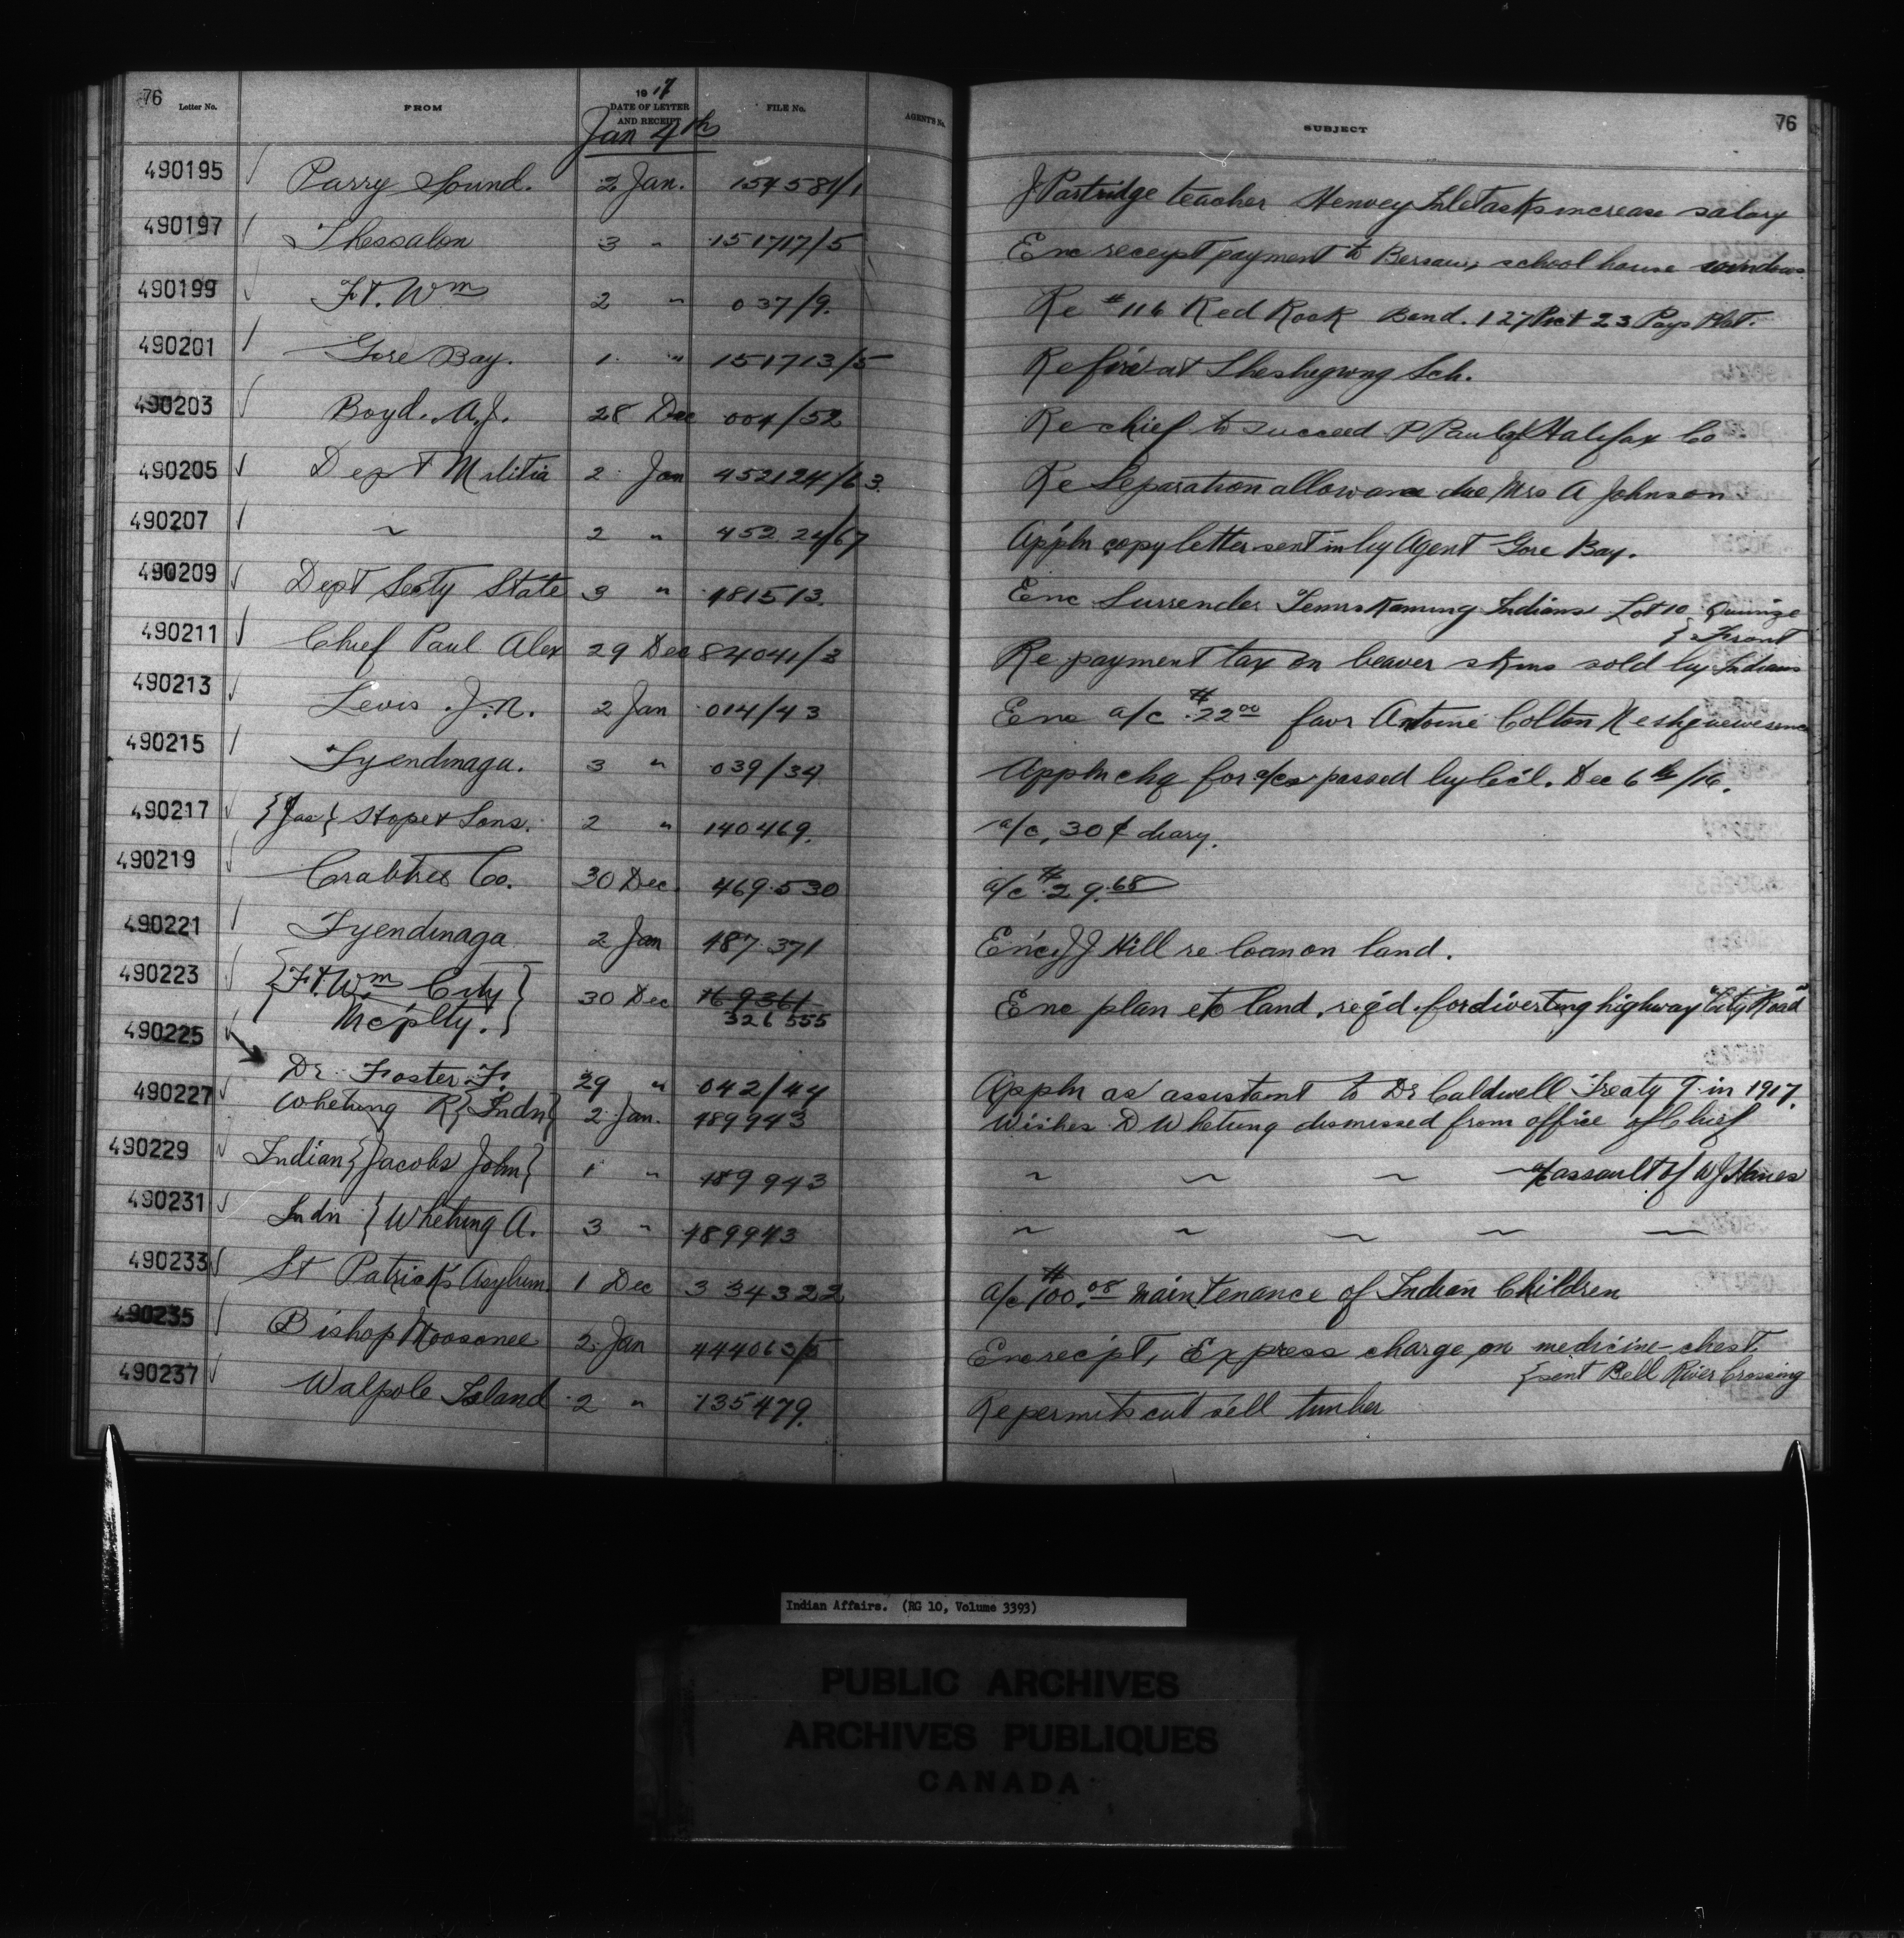 76 Letter No. FROM 1917 DATE OF LETTER AND RECEIPT FILE No. AGENT'S No. SUBJECT 76
Jan 4th
490195 Parry Sound. 2 Jan. 154581/1 J Partridge teacher Henvey Inlet asks increase salary
490197 Thessalon 3 " 151717/5 Enc receipt payment to school house windows
490199 Ft. Wm 2 " 037/9. Re #116 Red Rock Band. 127 Pict 23 Pays Plat.
490201 Gore Bay. 1 " 151713/5 Re fire at Sheshegwong Sch.
490203 Boyd. A.J. 28 Dec 004/52 Re chief to succeed P Paul of Halifax Co
490205 Dept Militia 2 Jan 452124/63. Re Separation allowance due Mrs A Johnson
490207 ~ 2 " 452 24/67 Appln copy letter sent in by Agent Gore Bay.
490209 Dept Secty State 3 " 481513. Enc Surrender Temiskaming Indians Lot 10 Quinze
{ Front
490211 Chief Paul Alex 29 Dec 84041/3 Re payment tax on beaver skins sold by Indians
490213 Levis J.N. 2 Jan 014/43 Enc a/c $22.00 favr Antoine Colton
490215 Tyendinaga. 3 " 039/34 Appln chq for a/cs passed by Cc'l. Dec 6th/16.
490217 {Jas} Hope & Sons. 2 " 140469. a/c, 30¢ diary.
490219 Crabtree Co. 30 Dec 469.530 a/c $29.68
490221 Tyendinaga 2 Jan 487.371 J J Hill re loan on land.
490223 {Ft. Wm City } 30 Dec 169361 Enc plan etc land, req'd. for diverting highway "City Road"
Mc'plty. } 326 555
490225
Dr. Foster F. 29 " 042/44 Appln as assistant to Dr Caldwell Treaty 9 in 1917.
490227 Whetung R {Indn} 2 Jan. 489943 Wishes D Whetung dismissed from office of Chief
490229 Indian {Jacobs John} 1 " 489943 ~ ~ ~ ~ a/c assault of W J Hanes
490231 Indn { Whetung A. 3 " 489943 ~ ~ ~ ~ ~
490233 St Patrick's Asylum 1 Dec 334322 a/c $100.08 maintenance of Indian Children
490235 Bishop Moosonee 2 Jan 444063/5 Enc rec'pt, Express charge on medicine chest
{sent Bell River Crossing
490237 Walpole Island 2 " 135479. Re permits cut sell timber
Indian Affairs. (RG 10, Volume 3393)
PUBLIC ARCHIVES
ARCHIVES PUBLIQUES
CANADA